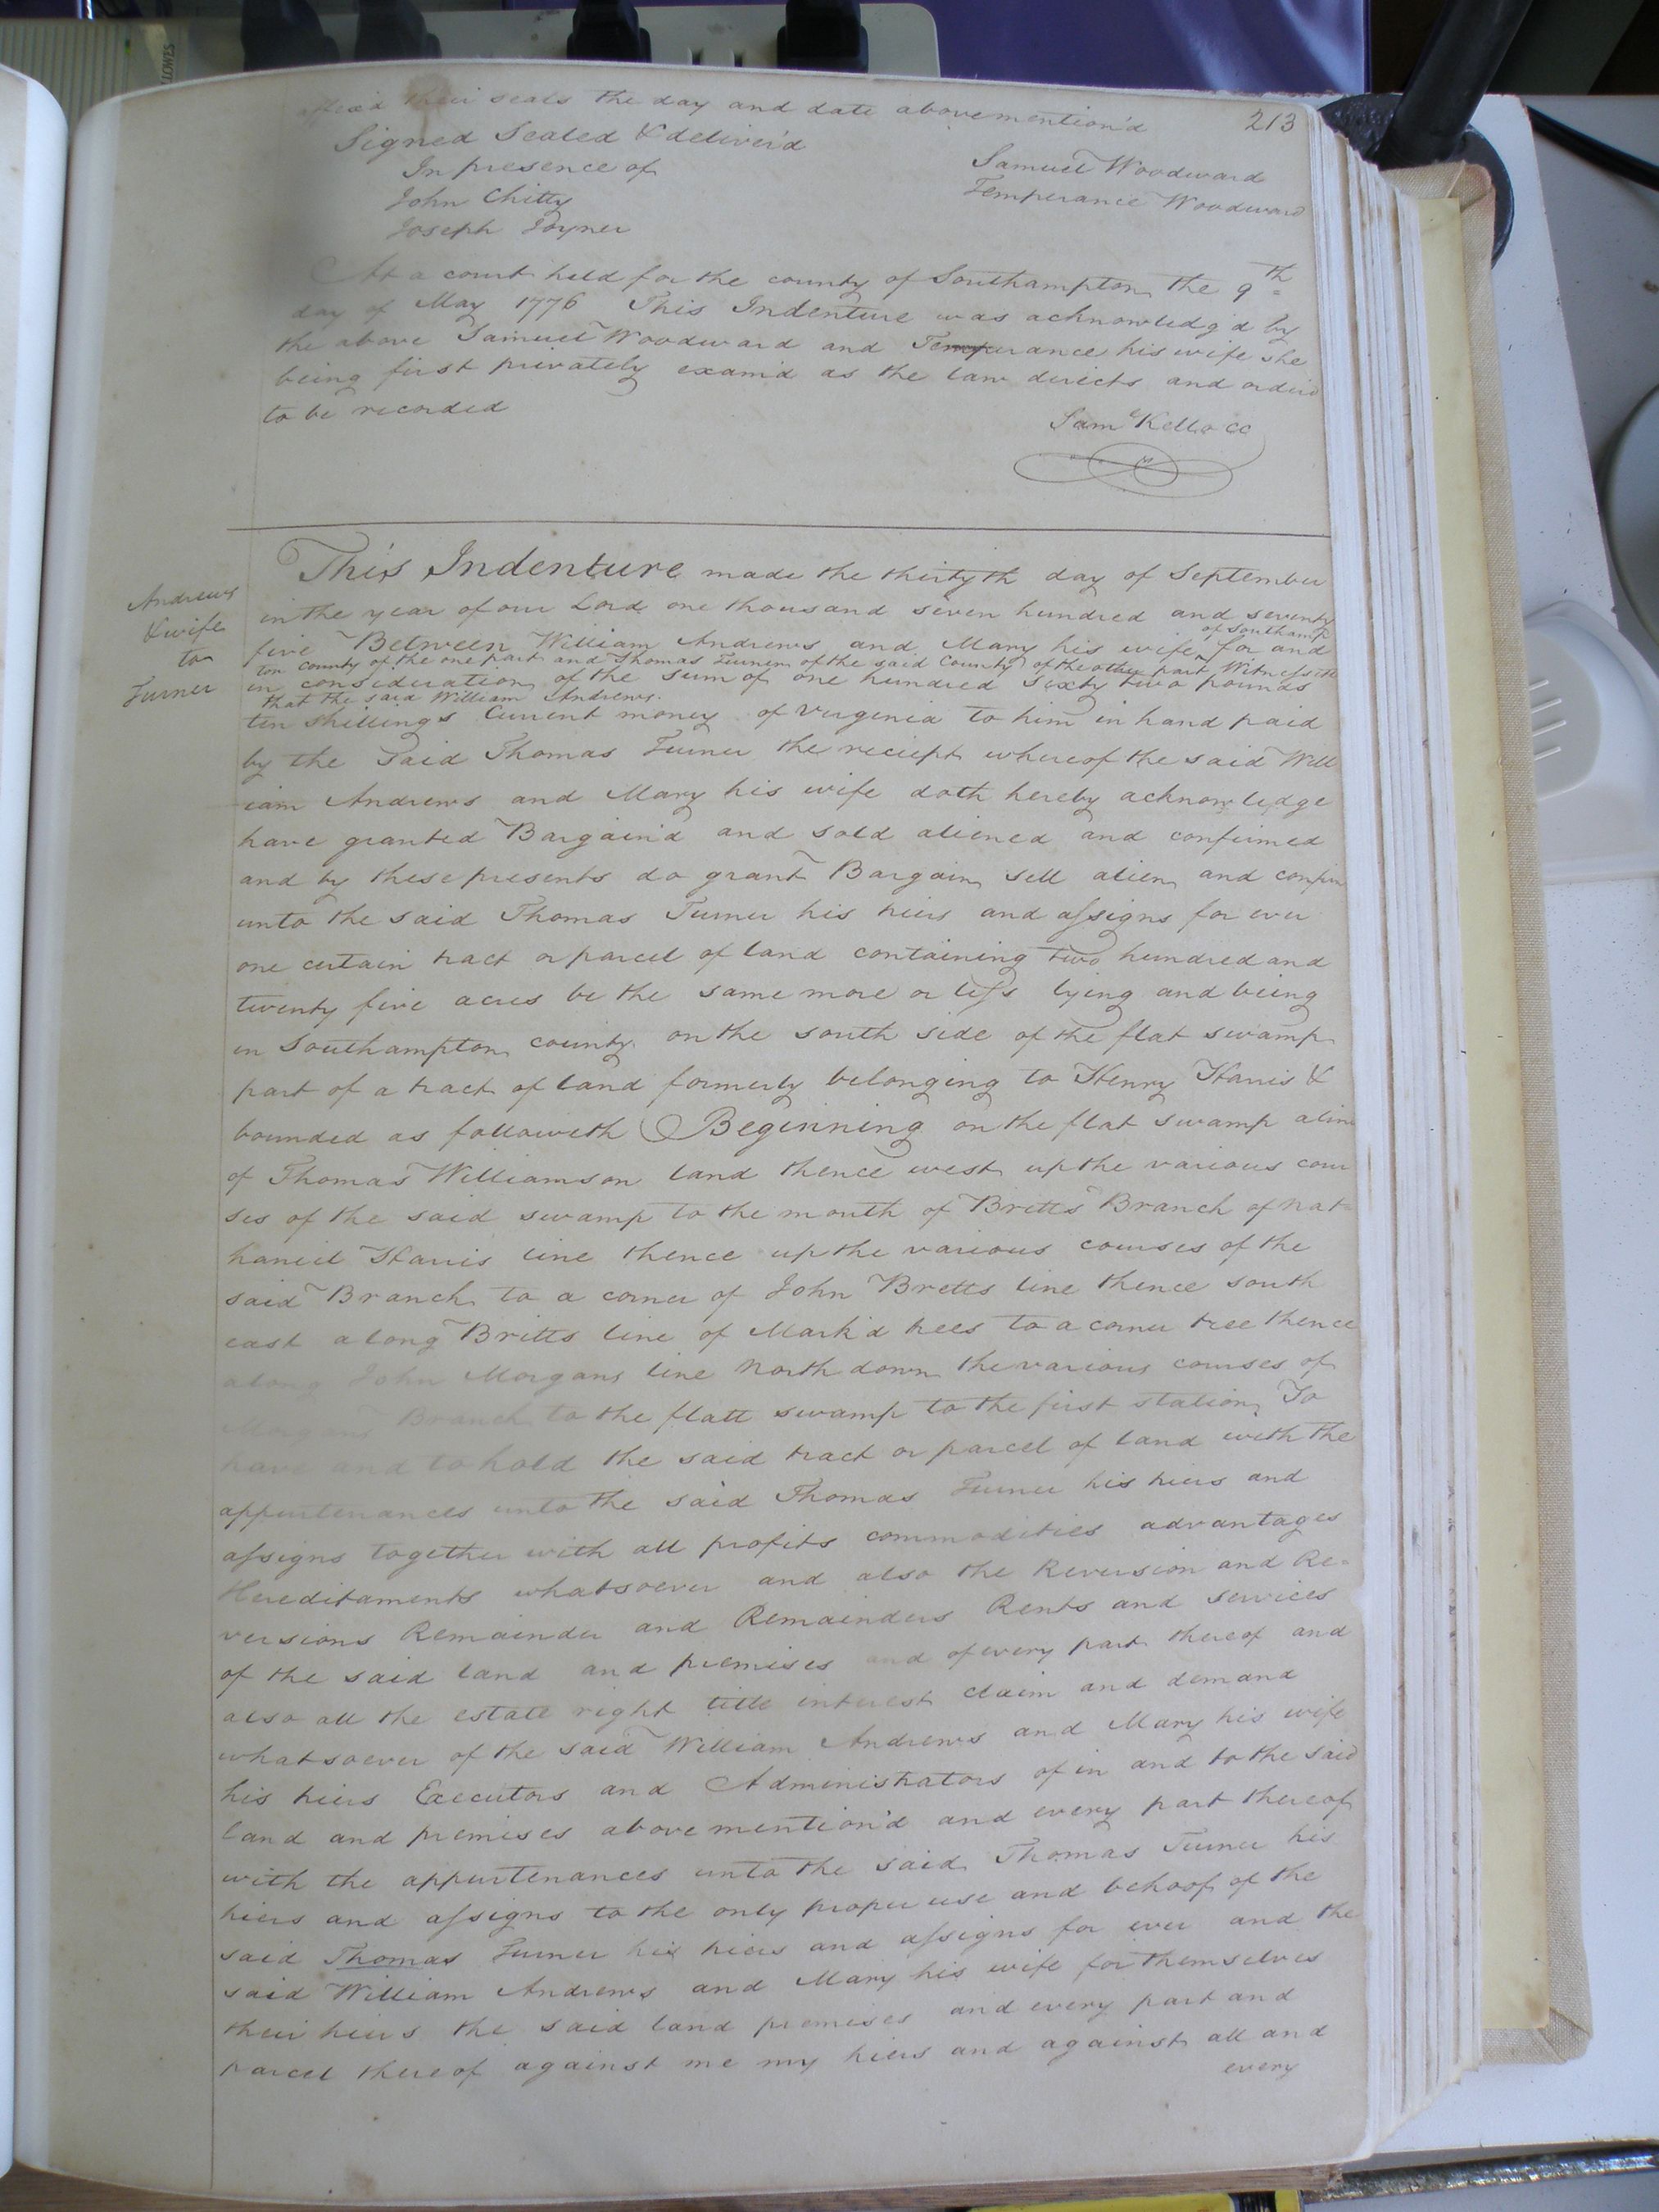 affix'd their seals the day and date abovemention'd
213
Signed Sealed & deliver'd
In presence of
Samuel Woodward
John Chitty
Temperance Woodward
Joseph Joyner
At a court held for the county of Southampton the 9th
day of May 1776 This Indenture was acknowledg'd by
the above Samuel Woodward and Temperance his wife she
being first privately exam'd as the law directs and order'd
to be recorded
Sam Kello CC
Andrews
& wife
to
Turner
This Indenture made the thirtyth day of September
in the year of our Lord one thousand seven hundred and seventy
of Southamp
five Between William Andrews and Mary his wife for and
ton county of the one part and Thomas Turner of the said County of the other part Witnesseth
in consideration of the sum of one hundred sixty two pounds
that the said William Andrews
ten shillings Current money of Virginia to him in hand paid
by the Said Thomas Turner the reciept whereof the said Will
iam Andrews and Mary his wife doth hereby acknowledge
have granted Bargain'd and sold aliened and confirmed
and by these presents do grant Bargain sell alien and confir
unto the said Thomas Turner his heirs and assigns for ever
one certain tract or parcel of land containing two hundred and
twenty five acres be the same more or less lying and being
in Southampton county on the south side of the flat swamp
part of a tract of land formerly belonging to Henry Harris &
bounded as followeth Beginning on the flat swamp a line
of Thomas Williamson land thence west up the various cour
ses of the said swamp to the mouth of Britts Branch of nat=
haniel Harris line thence up the various courses of the
said Branch to a corner of John Bretts line thence south
east along Britts line of Mark'd trees to a corner tree thence
along John Morgans line North down the various courses of
Morgans Branch to the flatt swamp to the first station To
have and to hold the said tract or parcel of land with the
appurtenances unto the said Thomas Turner his heirs and
assigns together with all profits commodities advantages
Hereditaments whatsoever and also the Reversion and Re=
versions Remainder and Remainders Rents and services
of the said land and premises and of every part thereof and
also all the estate right title interest claim and demand
whatsoever of the said William Andrews and Mary his wife
his hiers Executors and Administrators of in and to the said
land and premises abovemention'd and every part thereof
with the appurtenances unto the said Thomas Turner his
hiers and assigns to the only proper use and behoof of the
said Thomas Turner his hiers and assigns for ever and the
said William Andrews and Mary his wife for themselves
their hiers the said land premises and every part and
parcel thereof against me my hiers and against all and
every